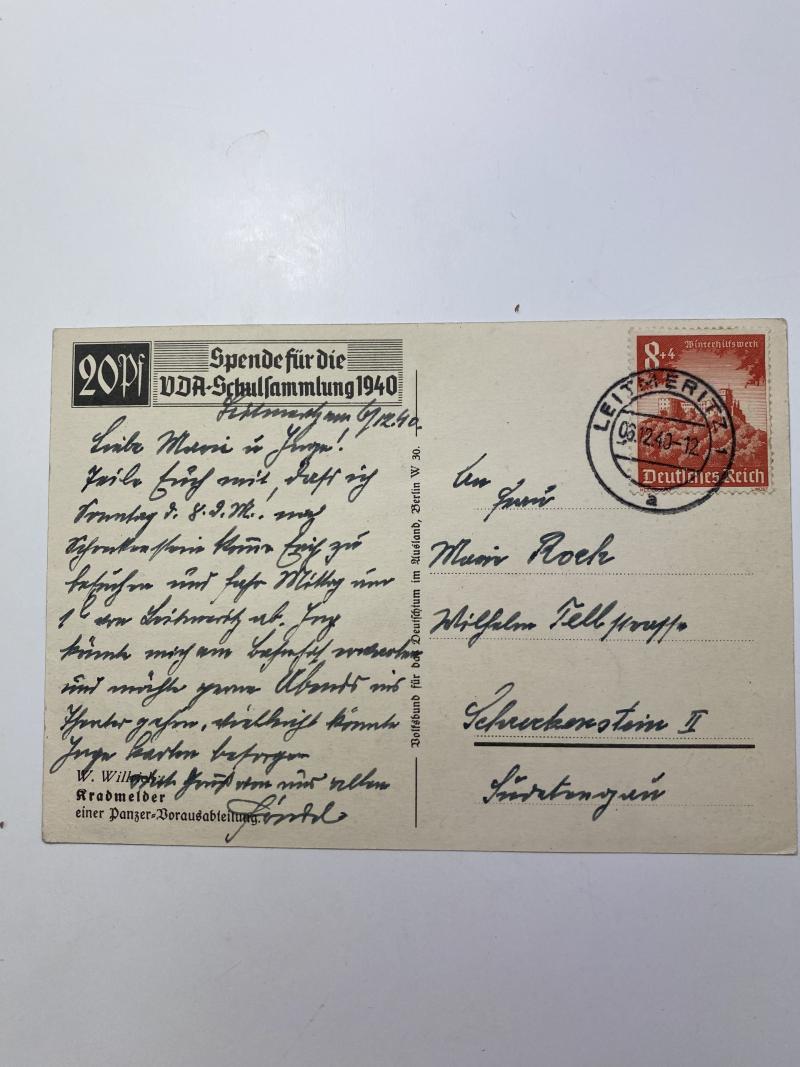 20 Pf
Spende für die
VDA-Schulsammlung 1940
Leitmeritz am 6/12.40.
Liebe Marie u Inge!
Teile Euch mit, dass ich
Sonntag d. 8. d. M., nach
Schreckenstein komme Euch zu
besuchen und fahr Mittag um
1h von Leitmeritz ab. Inge
könnte mich am Bahnhof erwarten
und möchte gerne Abends ins
Theater gehen, vielleicht könnte
Inge Karten besorgen
Mit Gruß von uns allen
W. Will
Kradmelder
einer Panzer-Vorausabteilung
Volksbund für das Deutschtum im Ausland, Berlin W 30.
8+4
Winterhilfswerk
Deutsches Reich
LEITMERITZ 1
06.12.40-12
a
An
Frau
Marie Rock
Wilhelm Tellstrasse
Schreckenstein II
Sudetengau